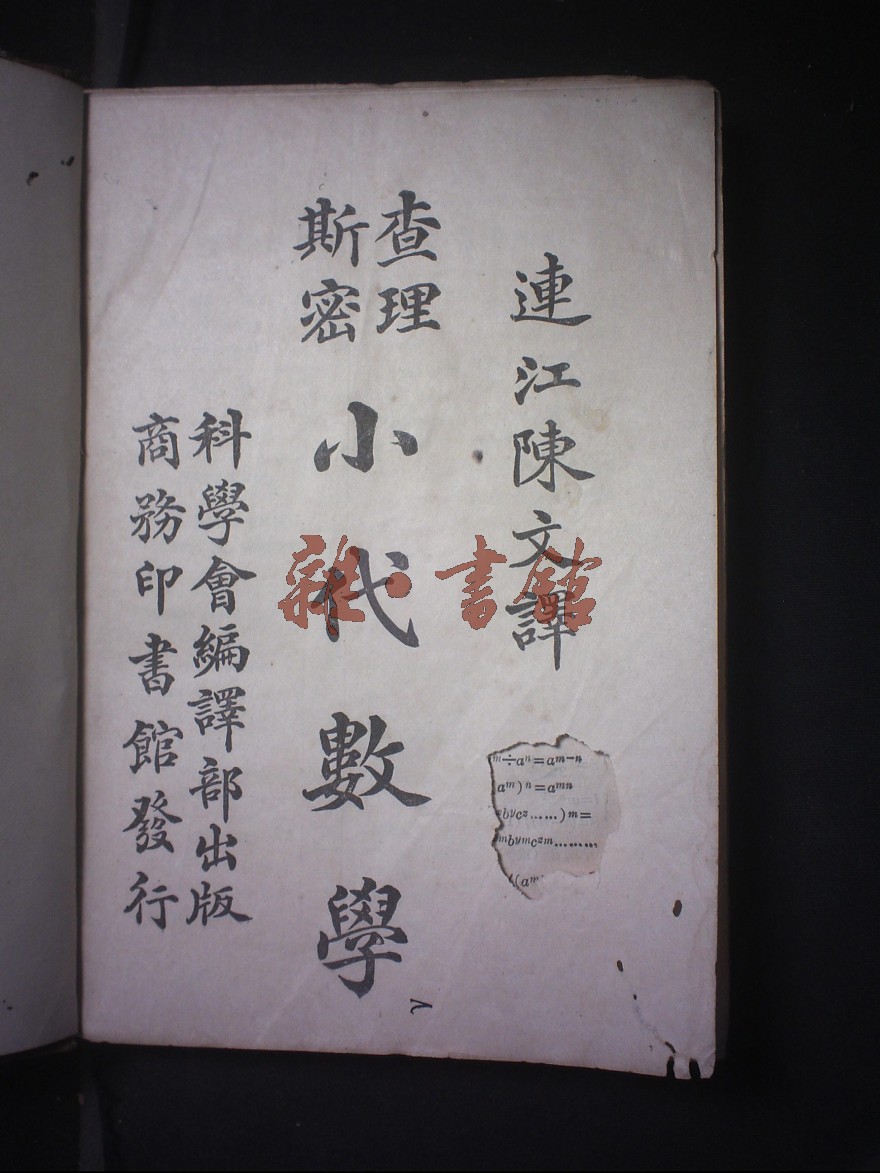 連江陳文譯
查理
斯密
小代數學
科學會編譯部出版
商務印書館發行
雜·書館
m÷aⁿ=aᵐ⁻ⁿ
aᵐ)ⁿ=aᵐⁿ
bʸcᶻ……)ᵐ=
ᵐbʸᵐcᶻᵐ………
(aᵐ